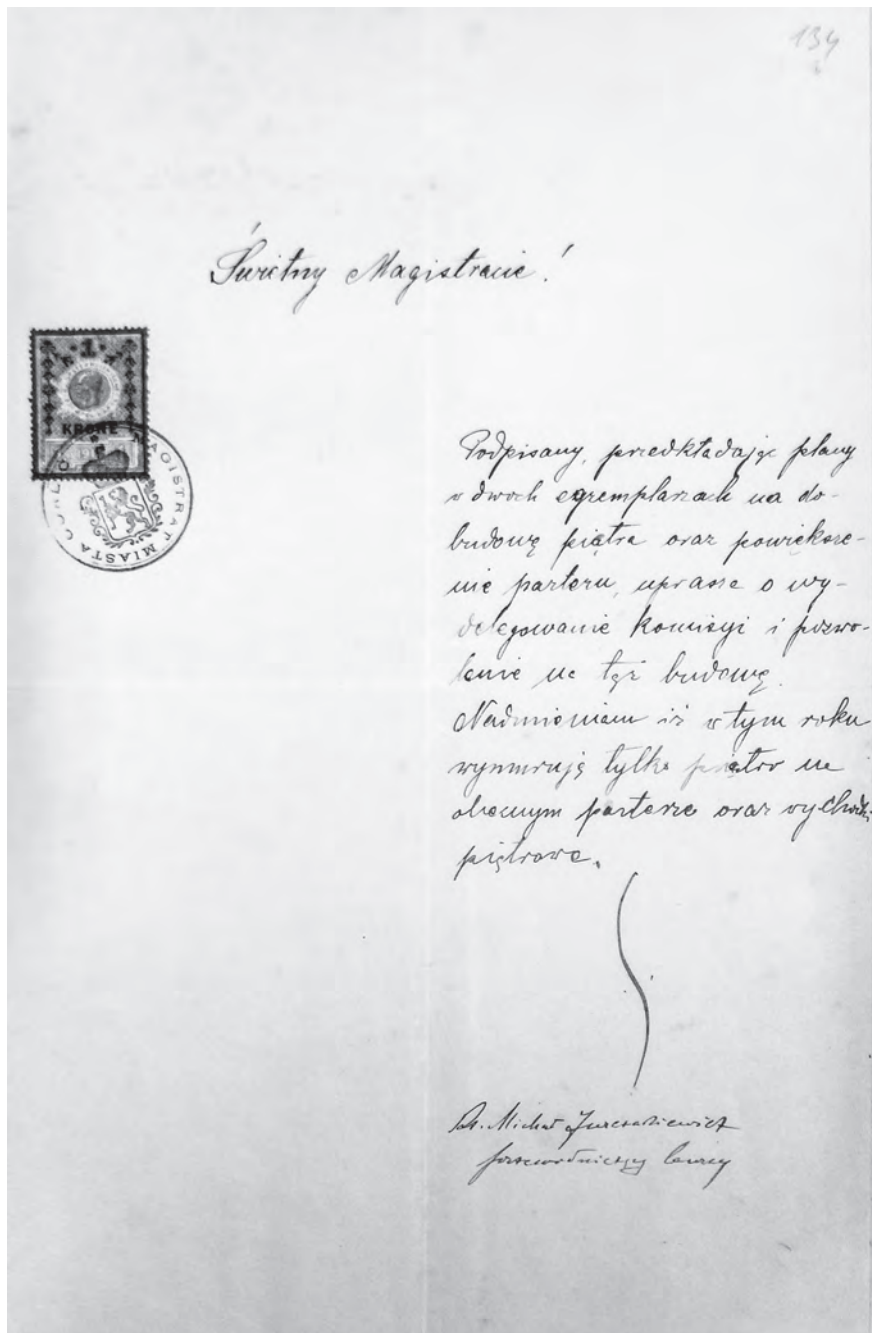 134
Świetny Magistracie!
1
KRONE
MAGISTRAT MIASTA
Podpisany, przedkładając plany
w dwoch egzemplarzach na do-
budowę piętra oraz powiększe-
nie parteru, uprasza o wy-
delegowanie komisyi i pozwo-
lenie na tęż budowę.
Nadmieniam iż w tym roku
wymurują tylko piętro na
obecnym parterze oraz wychodki
piętrowe.
Ks. Michał
przewodniczący